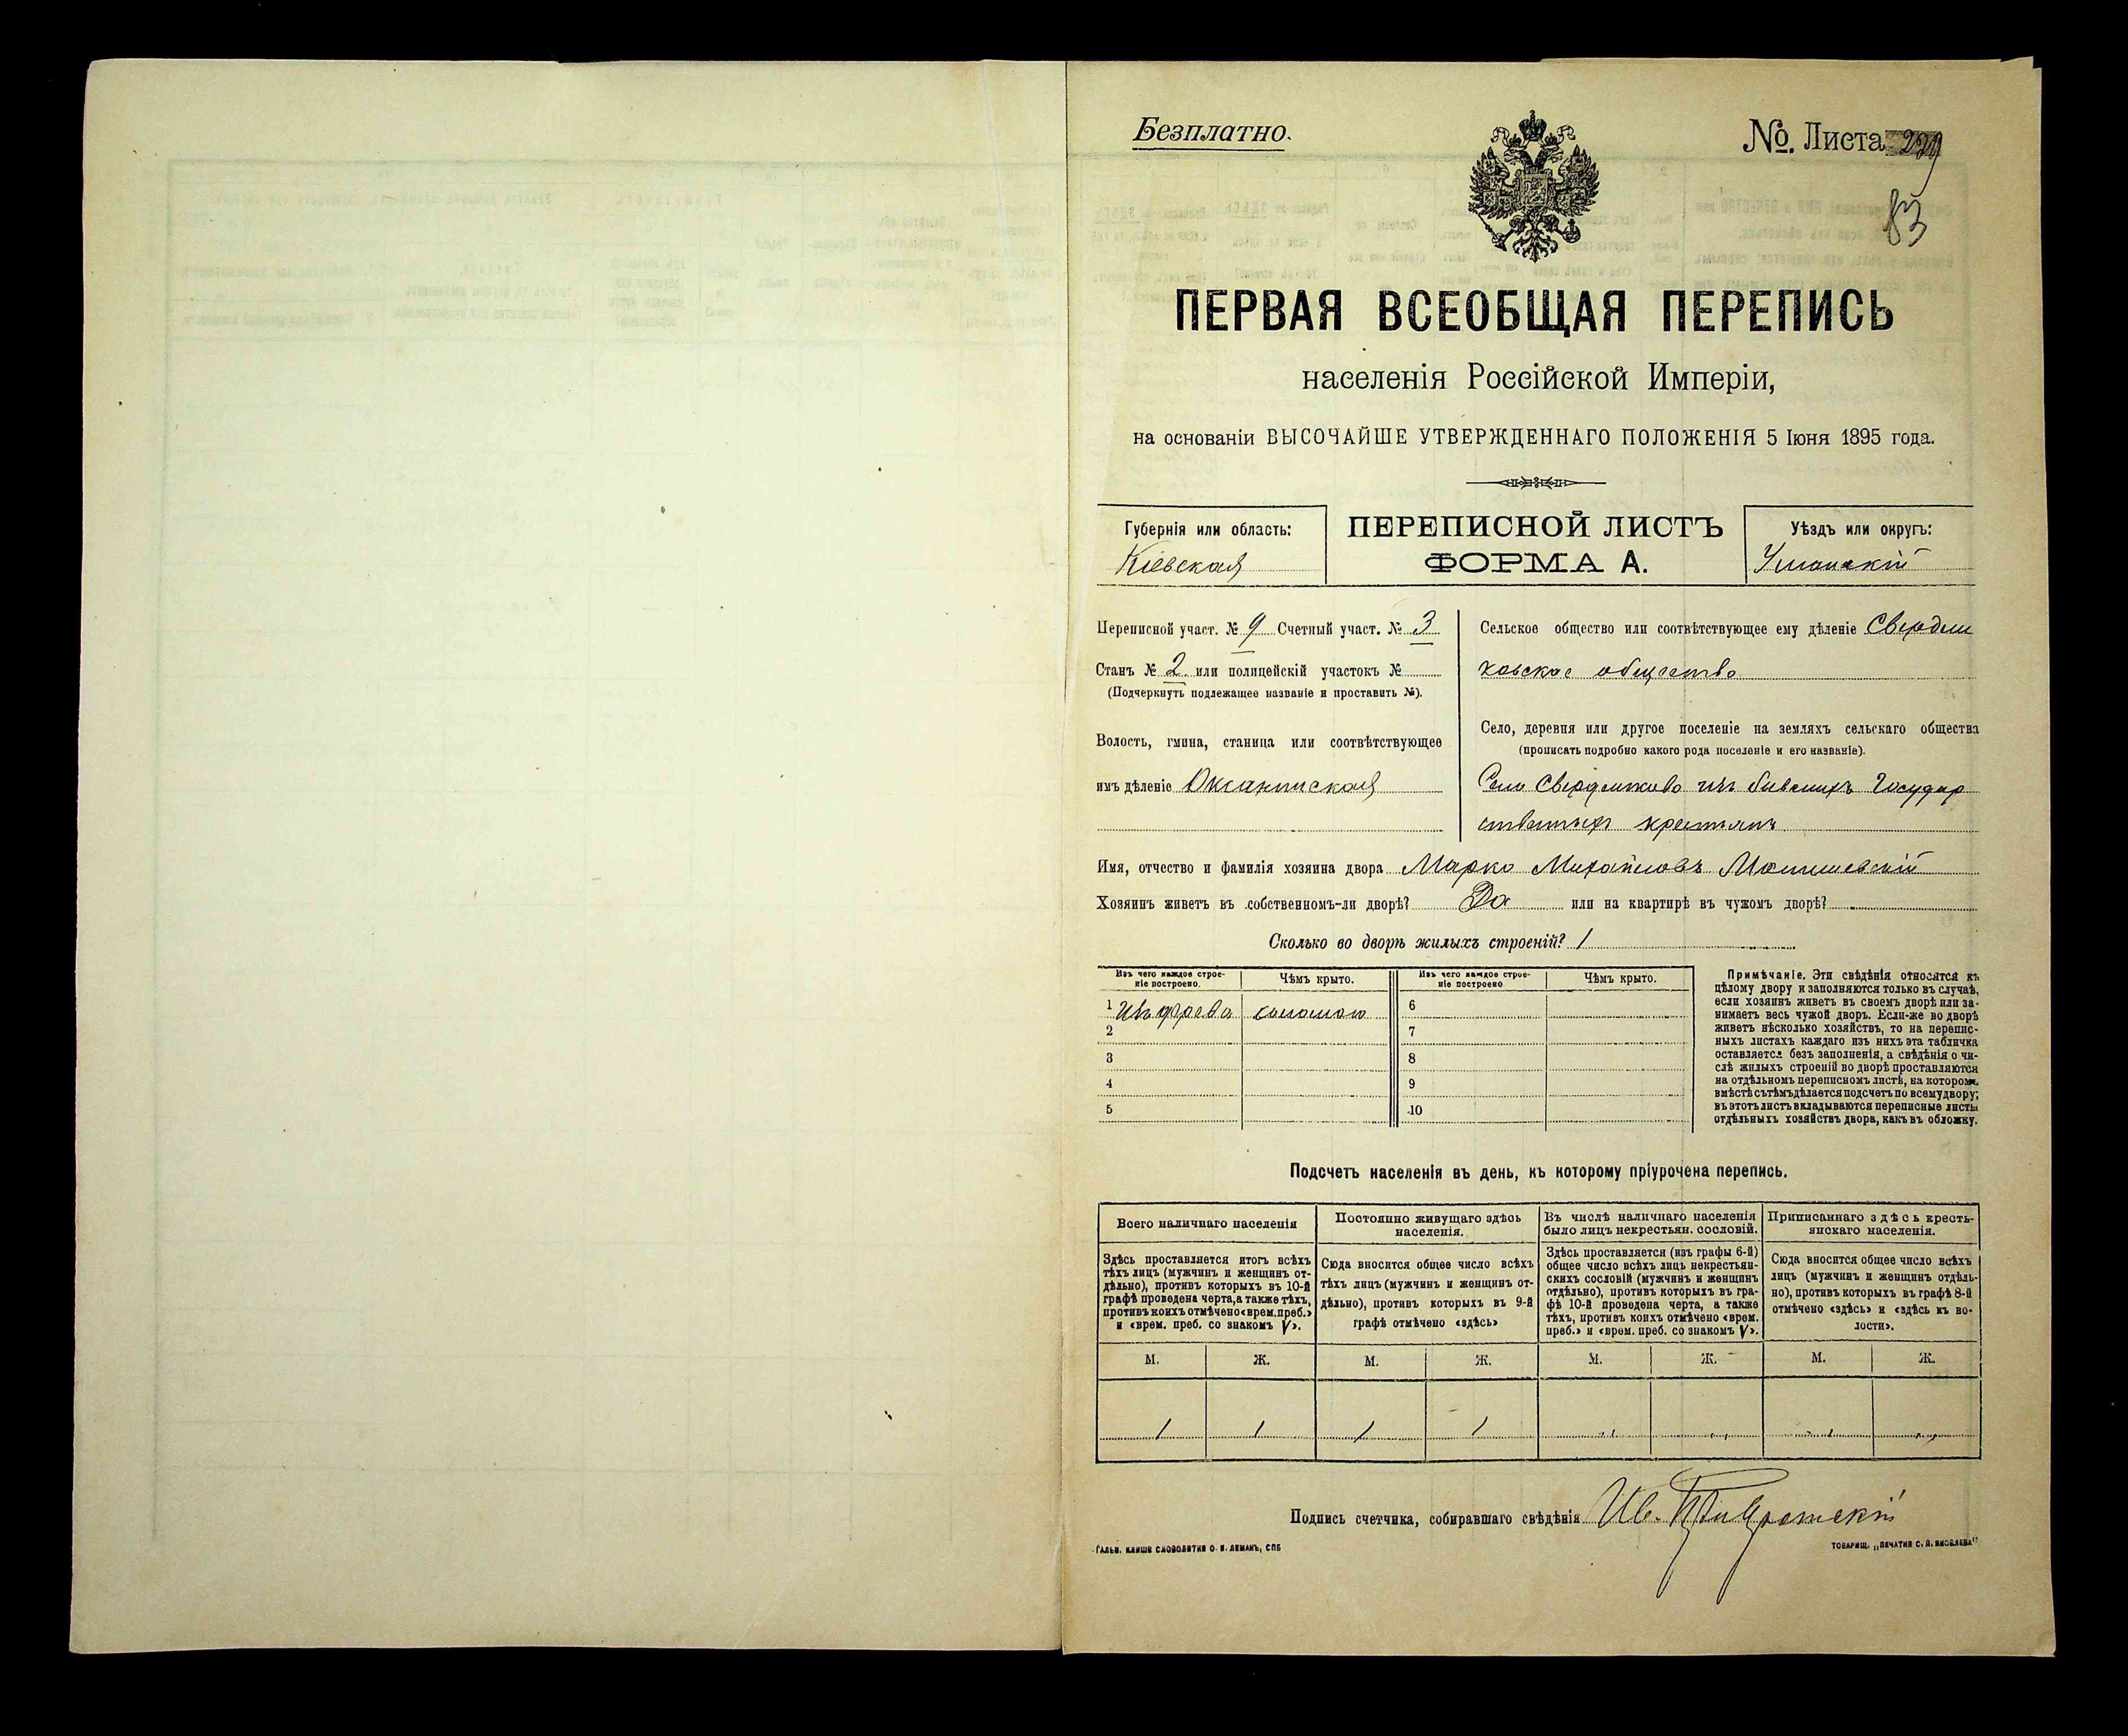 Безплатно.
№. Листа
83
ПЕРВАЯ ВСЕОБЩАЯ ПЕРЕПИСЬ
населенія Россійской Имперіи,
на основаніи ВЫСОЧАЙШЕ УТВЕРЖДЕННАГО ПОЛОЖЕНІЯ 5 Іюня 1895 года.
Губернія или область:
Кіевская
ПЕРЕПИСНОЙ ЛИСТЪ
ФОРМА А.
Уѣздъ или округъ:
Уманскій
Переписной участ. № 9 Счетный участ. № 3
Станъ № 2 или полицейскій участокъ №
(Подчеркнуть подлежащее названіе и проставить №).
Волость, гмина, станица или соотвѣтствующее
имъ дѣленіе Оксанинская
Сельское общество или соотвѣтствующее ему дѣленіе Свердли
ковское общество
Село, деревня или другое поселеніе на земляхъ сельскаго общества
(прописать подробно какого рода поселеніе и его названіе).
Село Свердликово изъ бывшихъ Государ
ственныхъ крестьянъ
Имя, отчество и фамилія хозяина двора Марко Михайловъ
Хозяинъ живетъ въ собственномъ-ли дворѣ? Да или на квартирѣ въ чужомъ дворѣ?
Сколько во дворѣ жилыхъ строеній? 1
Изъ чего каждое строе-
ніе построено.
Чѣмъ крыто.
Изъ чего каждое строе-
ніе построено
Чѣмъ крыто.
1 Изъ дерева соломою
2
3
4
5
6
7
8
9
10
Примѣчаніе. Эти свѣдѣнія относятся къ
цѣлому двору и заполняются только въ случаѣ,
если хозяинъ живетъ въ своемъ дворѣ или за-
нимаетъ весь чужой дворъ. Если-же во дворѣ
живетъ нѣсколько хозяйствъ, то на перепис-
ныхъ листахъ каждаго изъ нихъ эта табличка
оставляется безъ заполненія, а свѣдѣнія о чи-
слѣ жилыхъ строеній во дворѣ проставляются
на отдѣльномъ переписномъ листѣ, на которомъ
вмѣстѣ съ тѣмъ дѣлается подсчетъ по всему двору;
въ этотъ листъ вкладываются переписные листы
отдѣльныхъ хозяйствъ двора, какъ въ обложку.
Подсчетъ населенія въ день, къ которому пріурочена перепись.
Всего наличнаго населенія
Здѣсь проставляется итогъ всѣхъ
тѣхъ лицъ (мужчинъ и женщинъ от-
дѣльно), противъ которыхъ въ 10-й
графѣ проведена черта, а также тѣхъ,
противъ коихъ отмѣчено «врем. преб.»
и «врем. преб. со знакомъ V».
Постоянно живущаго здѣсь
населенія.
Сюда вносится общее число всѣхъ
тѣхъ лицъ (мужчинъ и женщинъ от-
дѣльно), противъ которыхъ въ 9-й
графѣ отмѣчено «здѣсь»
Въ числѣ наличнаго населенія
было лицъ некрестьян. сословій.
Здѣсь проставляется (изъ графы 6-й)
общее число всѣхъ лицъ некрестьян-
скихъ сословій (мужчинъ и женщинъ
отдѣльно), противъ которыхъ въ гра-
фѣ 10-й проведена черта, а также
тѣхъ, противъ коихъ отмѣчено «врем.
преб.» и «врем. преб. со знакомъ V».
Приписаннаго здѣсь кресть-
янскаго населенія.
Сюда вносится общее число всѣхъ
лицъ (мужчинъ и женщинъ отдѣль-
но), противъ которыхъ въ графѣ 8-й
отмѣчено «здѣсь» и «здѣсь къ во-
лости».
М. Ж. М. Ж. М. Ж. М. Ж.
1 1 1 1
Подпись счетчика, собиравшаго свѣдѣнія Ив.
ГАЛЬВ. КЛИШЕ СЛОВОЛИТНИ О. И. ЛЕМАНЪ, СПБ
ТОВАРИЩ. „ПЕЧАТНЯ С. П. ЯКОВЛЕВА"